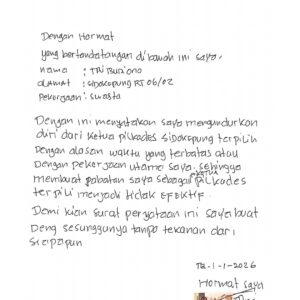 Dengan Hormat
yang bertandatangan dibawah ini saya,
nama : TRI Buriono
alamat : Sidokepung RT 06/02
Pekerjaan : Swasta
Dengan ini menyatakan saya mengundurkan
diri dari Ketua pilkades Sidokepung terpilih
Dengan alasan waktu yang terbatas atau
Dengan pekerjaan utama saya, sehingga
membuat jabatan saya sebagai ketua pilkades
terpili menjadi tidak EFEKTIF.
Demi kian surat peryataan ini saya buat
Deng sesungguhnya tanpa tekanan dari
siapapun
1-1-2026
Hormat saya